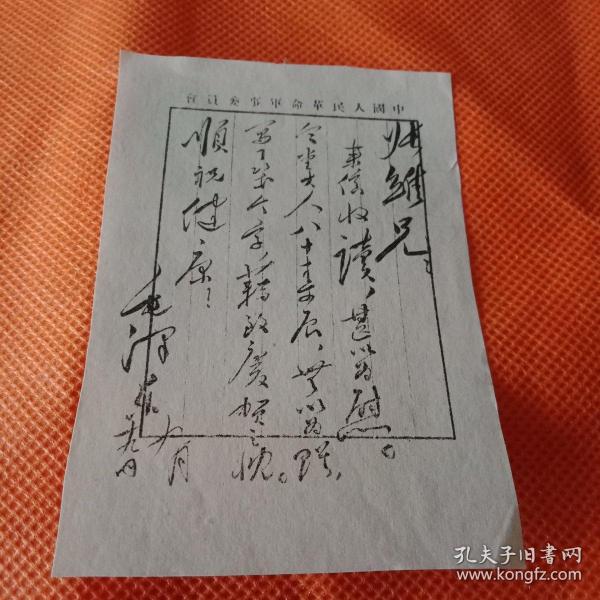 中國人民革命軍事委員會
純雛兄：
來信收讀，甚以為慰。
令堂大人八十壽辰，無以為贈，
寫了幾個字，藉致慶賀之忱。
順祝健康！
毛澤東 九月
孔夫子旧书网
www.kongfz.com